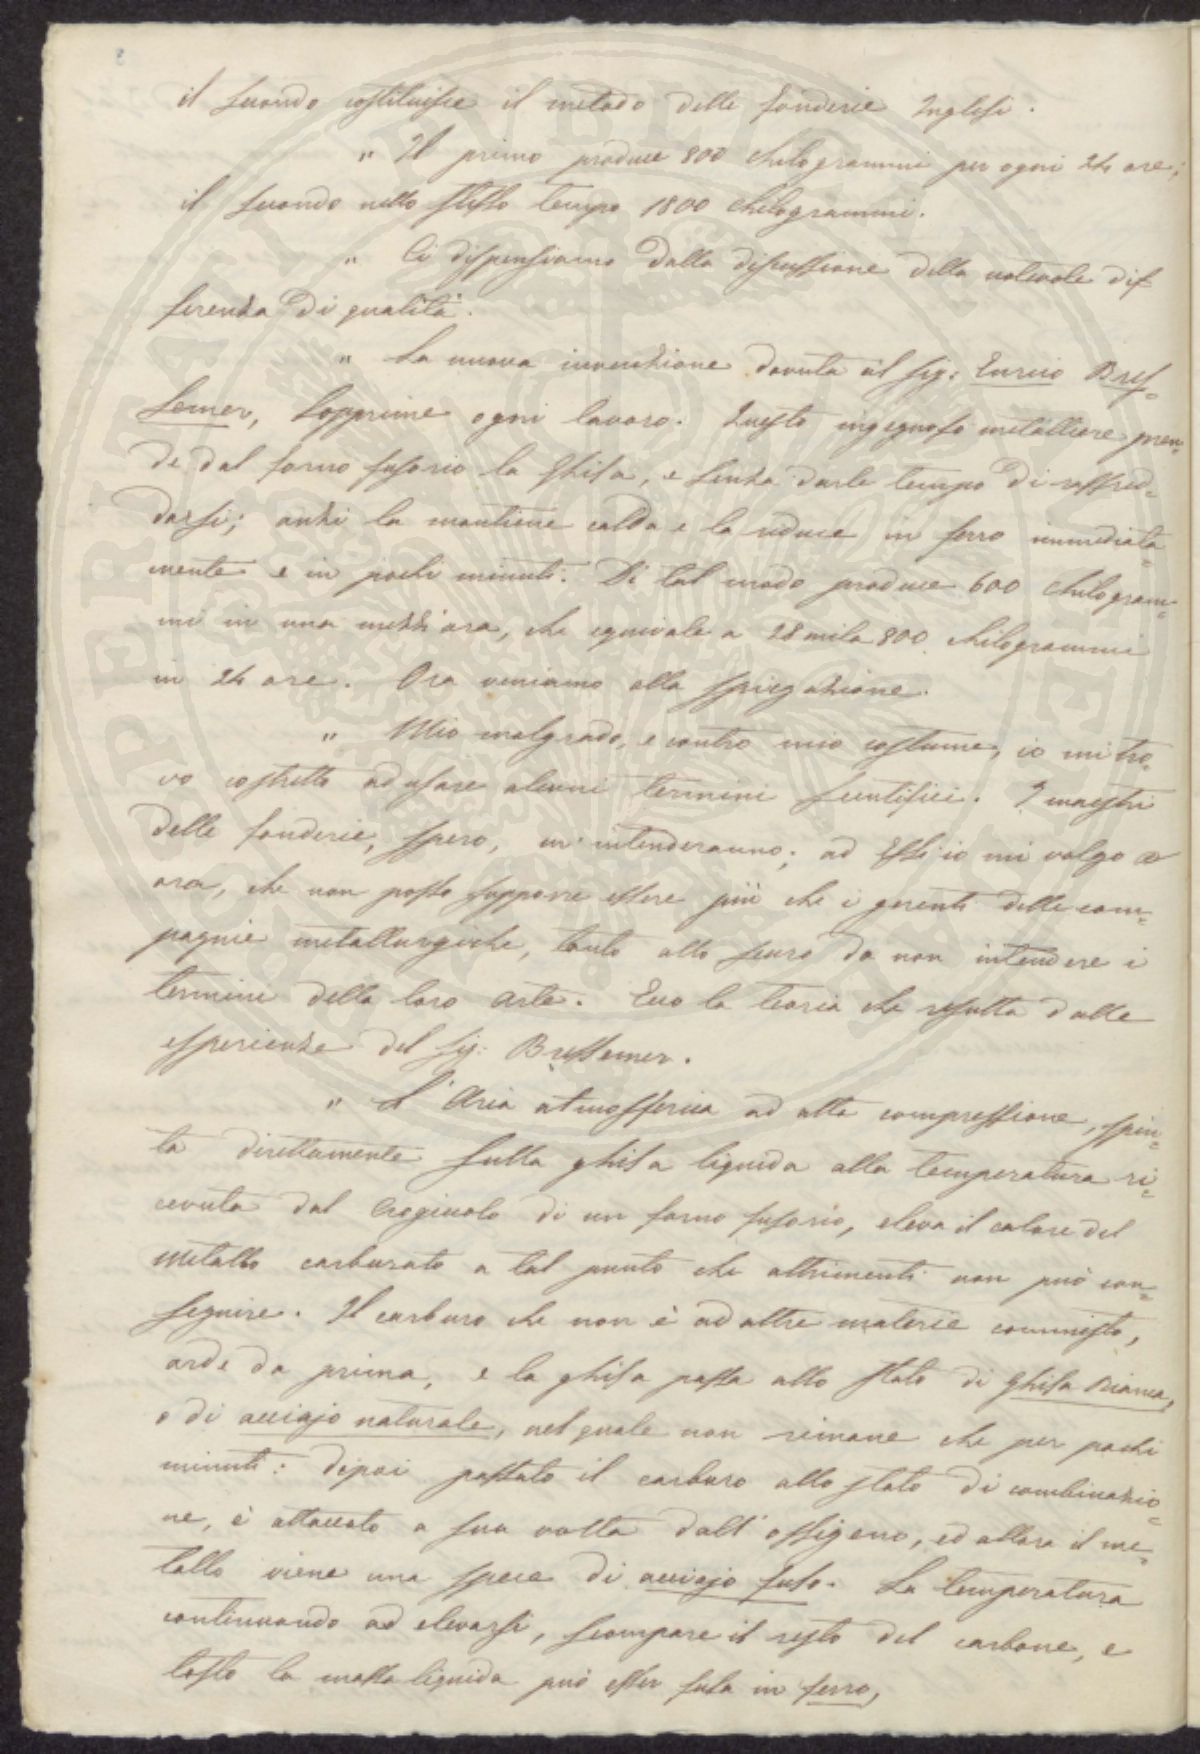 il secondo costituisce il metodo delle fonderie Inglesi.
" Il primo produce 800 chilogrammi per ogni 24 ore;
il secondo nello stesso tempo 1800 chilogrammi.
" Ci dispensiamo dalla discussione della notevole dif
ferenza di qualità.
" La nuova invenzione dovuta al sig: Enrico Bes=
semer, sopprime ogni lavoro. Questo ingegnoso metalliere pren=
de dal forno fusorio la Ghisa, e senza darle tempo di raffred=
darsi; anzi la mantiene calda e la riduce in ferro immediata=
mente e in pochi minuti. Di tal modo produce 600 chilogram=
mi in una mezz'ora, che equivale a 28 mila 800 chilogrammi
in 24 ore. Ora veniamo alla spiegazione.
" Mio malgrado, e contro mio costume, io mi tro=
vo costretto ad usare alcuni termini scentifici. I maestri
delle fonderie, spero, m'intenderanno; ad essi io mi volgo
ora, che non posso supporre essere più che i gerenti delle com=
pagnie metallurgiche, tanto allo scuro da non intendere i
termini della loro arte. Ecco la teoria che risulta dalle
esperienze del sig: Bessemer.
" L'Aria atmosferica ad alta compressione, spin=
ta direttamente sulla ghisa liquida alla temperatura ri=
cevuta dal Crogiuolo di un forno fusorio, eleva il calore del
metallo carburato a tal punto che altrimenti non può con=
seguire. Il carburo che non è ad altre materie commisto,
arde da prima, e la ghisa passa allo stato di ghisa bianca,
o di acciajo naturale, nel quale non rimane che per pochi
minuti: dipoi passato il carburo allo stato di combinazio=
ne, è attaccato a sua volta dall'ossigeno, ed allora il me=
tallo viene una spece di acciajo fuso. La temperatura
continuando ad elevarsi, scompare il resto del carbone, e
tosto la massa liquida può esser fusa in ferro,